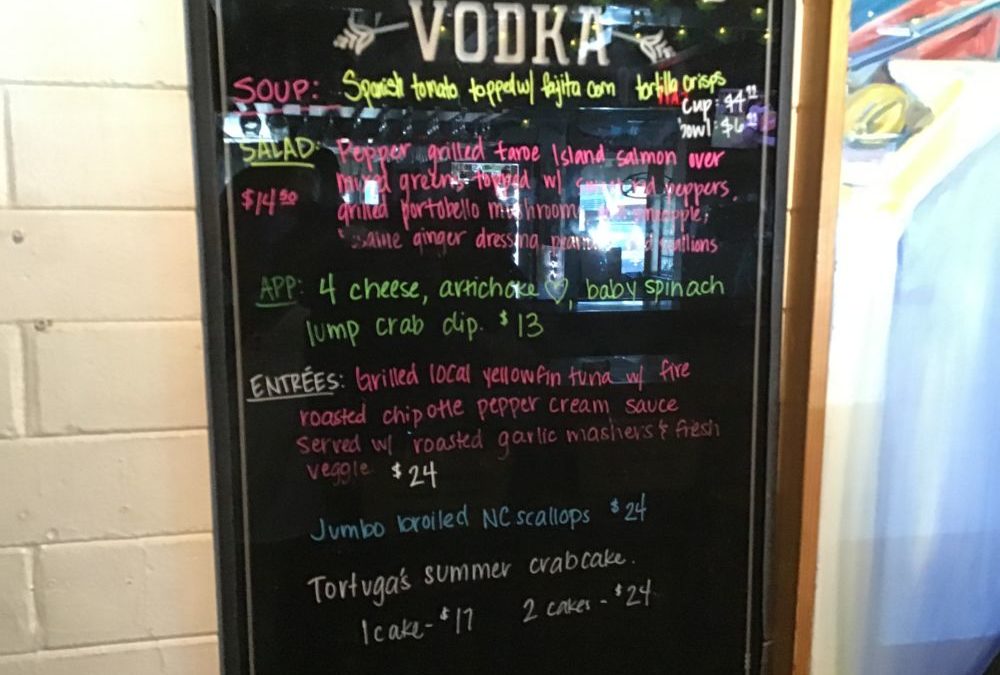 VODKA
SOUP: Spanish tomato topped w/ fajita corn tortilla crisps
cup: $4
bowl: $6
SALAD: Pepper grilled faroe Island salmon over
$14.50 mixed greens topped w/ peppers,
grilled portobello mushroom, pineapple,
ginger dressing, scallions
APP: 4 cheese, artichoke ♡, baby spinach
lump crab dip. $13
ENTRÉES: Grilled local yellowfin tuna w/ fire
roasted chipotle pepper cream sauce
served w/ roasted garlic mashers & fresh
veggie $24
Jumbo broiled NC scallops $24
Tortuga's summer crabcake.
1 cake - $17 2 cakes - $24